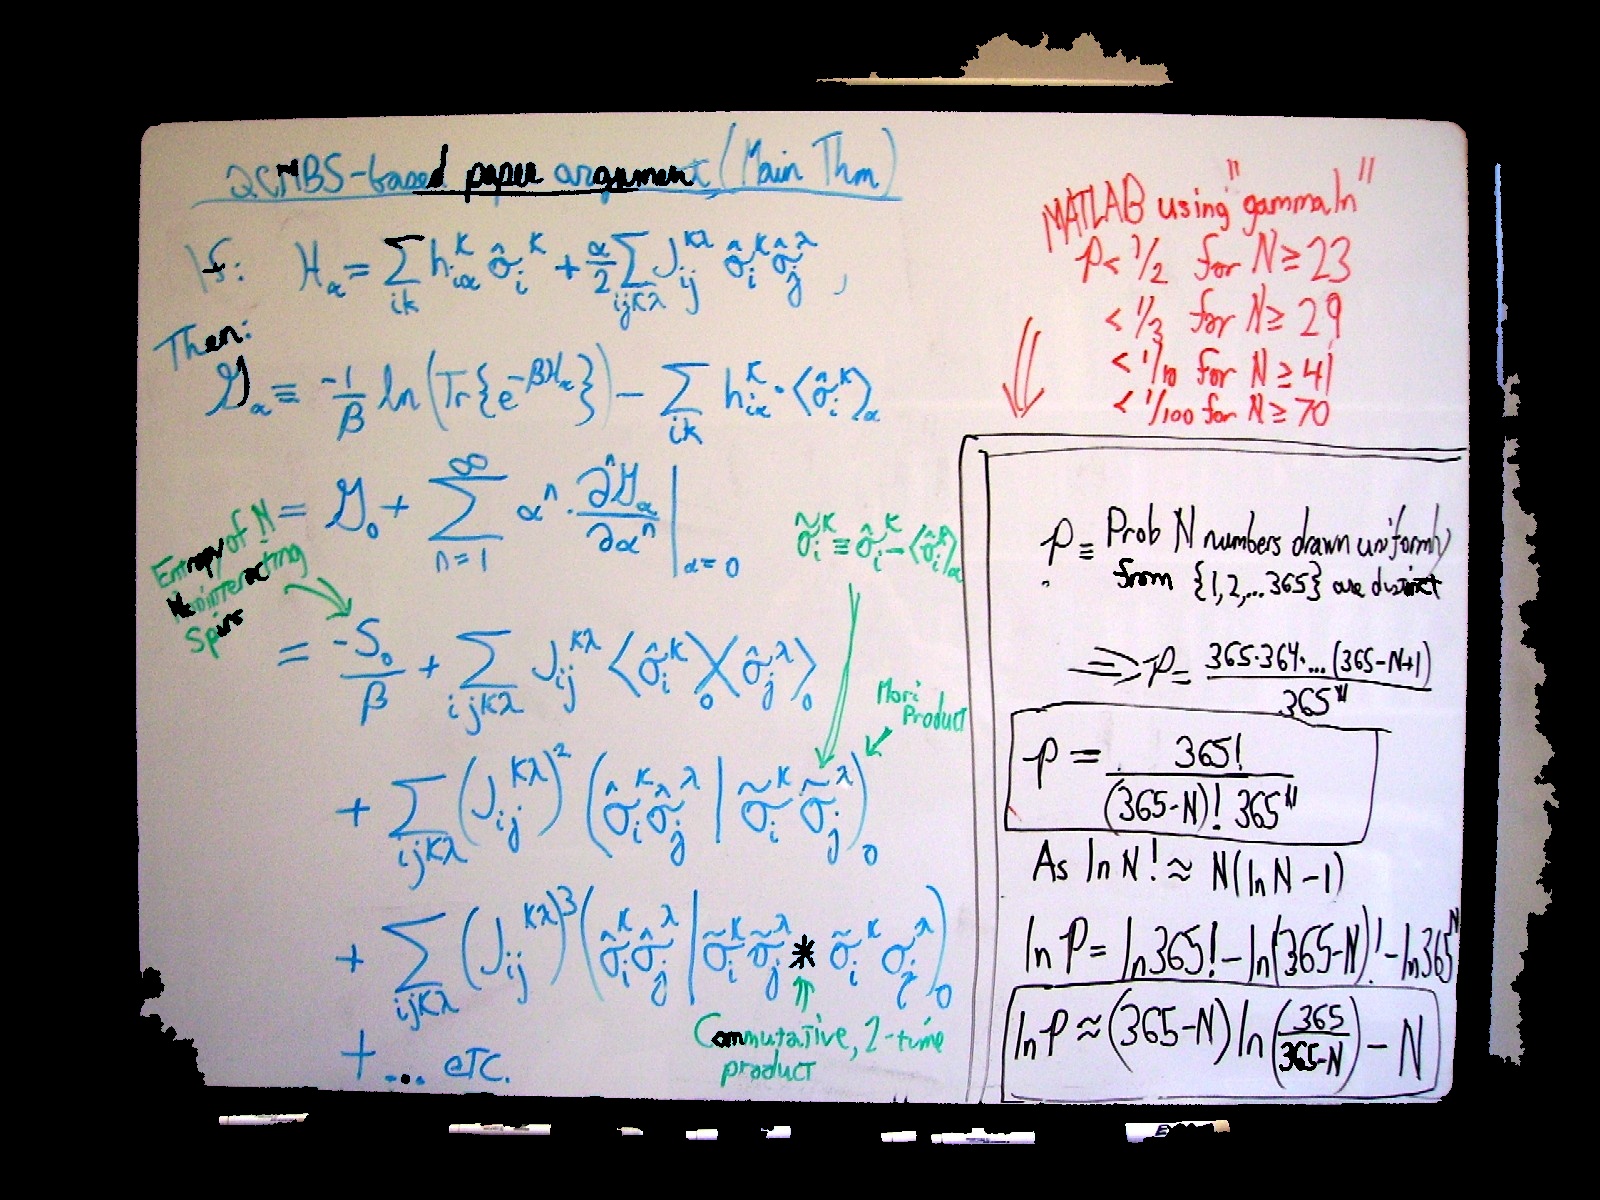 QCMBS-based paper argument (Main Thm)
If: H_α = Σ_{ik} h_{iα}^κ σ̂_i^κ + α/2 Σ_{ijκλ} J_{ij}^{κλ} σ̂_i^κ σ̂_j^λ ,
Then:
𝒢_α ≡ -1/β ln(Tr{e^{-βH_α}}) - Σ_{ik} h_{iα}^κ · ⟨σ̂_i^κ⟩_α
= 𝒢_0 + Σ_{n=1}^∞ α^n · ∂^n𝒢_α/∂α^n |_{α=0}
σ̃_i^κ ≡ σ̂_i^κ - ⟨σ̂_i^κ⟩_α
Entropy of N
Noninteracting
Spins
= -S_0/β + Σ_{ijκλ} J_{ij}^{κλ} ⟨σ̂_i^κ⟩_0 ⟨σ̂_j^λ⟩_0
Mori
Product
+ Σ_{ijκλ} (J_{ij}^{κλ})^2 (σ̂_i^κ σ̂_j^λ | σ̃_i^κ σ̃_j^λ)_0
+ Σ_{ijκλ} (J_{ij}^{κλ})^3 (σ̂_i^κ σ̂_j^λ | σ̃_i^κ σ̃_j^λ * σ̃_i^κ σ_j^λ)_0
Commutative, 2-time
product
+ ... etc.
MATLAB using "gammaln"
p < 1/2 for N ≥ 23
< 1/3 for N ≥ 29
< 1/10 for N ≥ 41
< 1/100 for N ≥ 70
p ≡ Prob N numbers drawn uniformly
from {1,2,...365} are distinct
⇒ p = 365·364·...(365-N+1)/365^N
p = 365!/((365-N)! 365^N)
As ln N! ≈ N(ln N - 1)
ln p = ln 365! - ln(365-N)! - ln 365^N
ln p ≈ (365-N) ln(365/(365-N)) - N